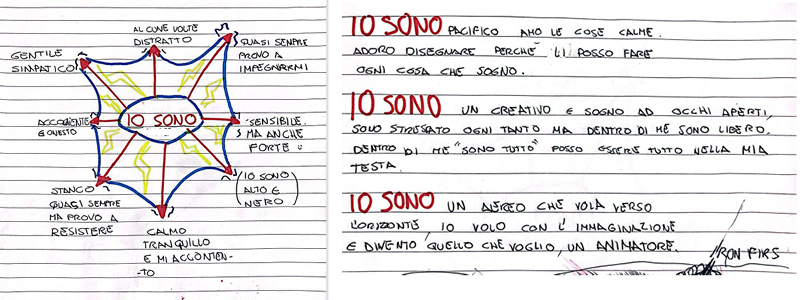 AL CUNE VOLTE
DISTRATTO
QUASI SEMPRE
PROVO A
IMPEGNARMI
GENTILE
SIMPATICO
ACCOGLIENTE
E QUESTO
IO SONO
SENSIBILE
MA ANCHE
FORTE
(IO SONO
ALTO E
NERO)
STANCO
QUASI SEMPRE
MA PROVO A
RESISTERE
CALMO
TRANQUILLO
E MI ACCONTEN-
-TO
IO SONO PACIFICO AMO LE COSE CALME.
ADORO DISEGNARE PERCHÈ LI POSSO FARE
OGNI COSA CHE SOGNO.
IO SONO UN CREATIVO E SOGNO AD OCCHI APERTI,
SONO STRESSATO OGNI TANTO MA DENTRO DI ME SONO LIBERO.
DENTRO DI ME "SONO TUTTO" POSSO ESSERE TUTTO NELLA MIA
TESTA.
IO SONO UN AEREO CHE VOLA VERSO
L'ORIZZONTE, IO VOLO CON L'IMMAGINAZIONE
E DIVENTO QUELLO CHE VOGLIO, UN ANIMATORE.
IRON FIRS